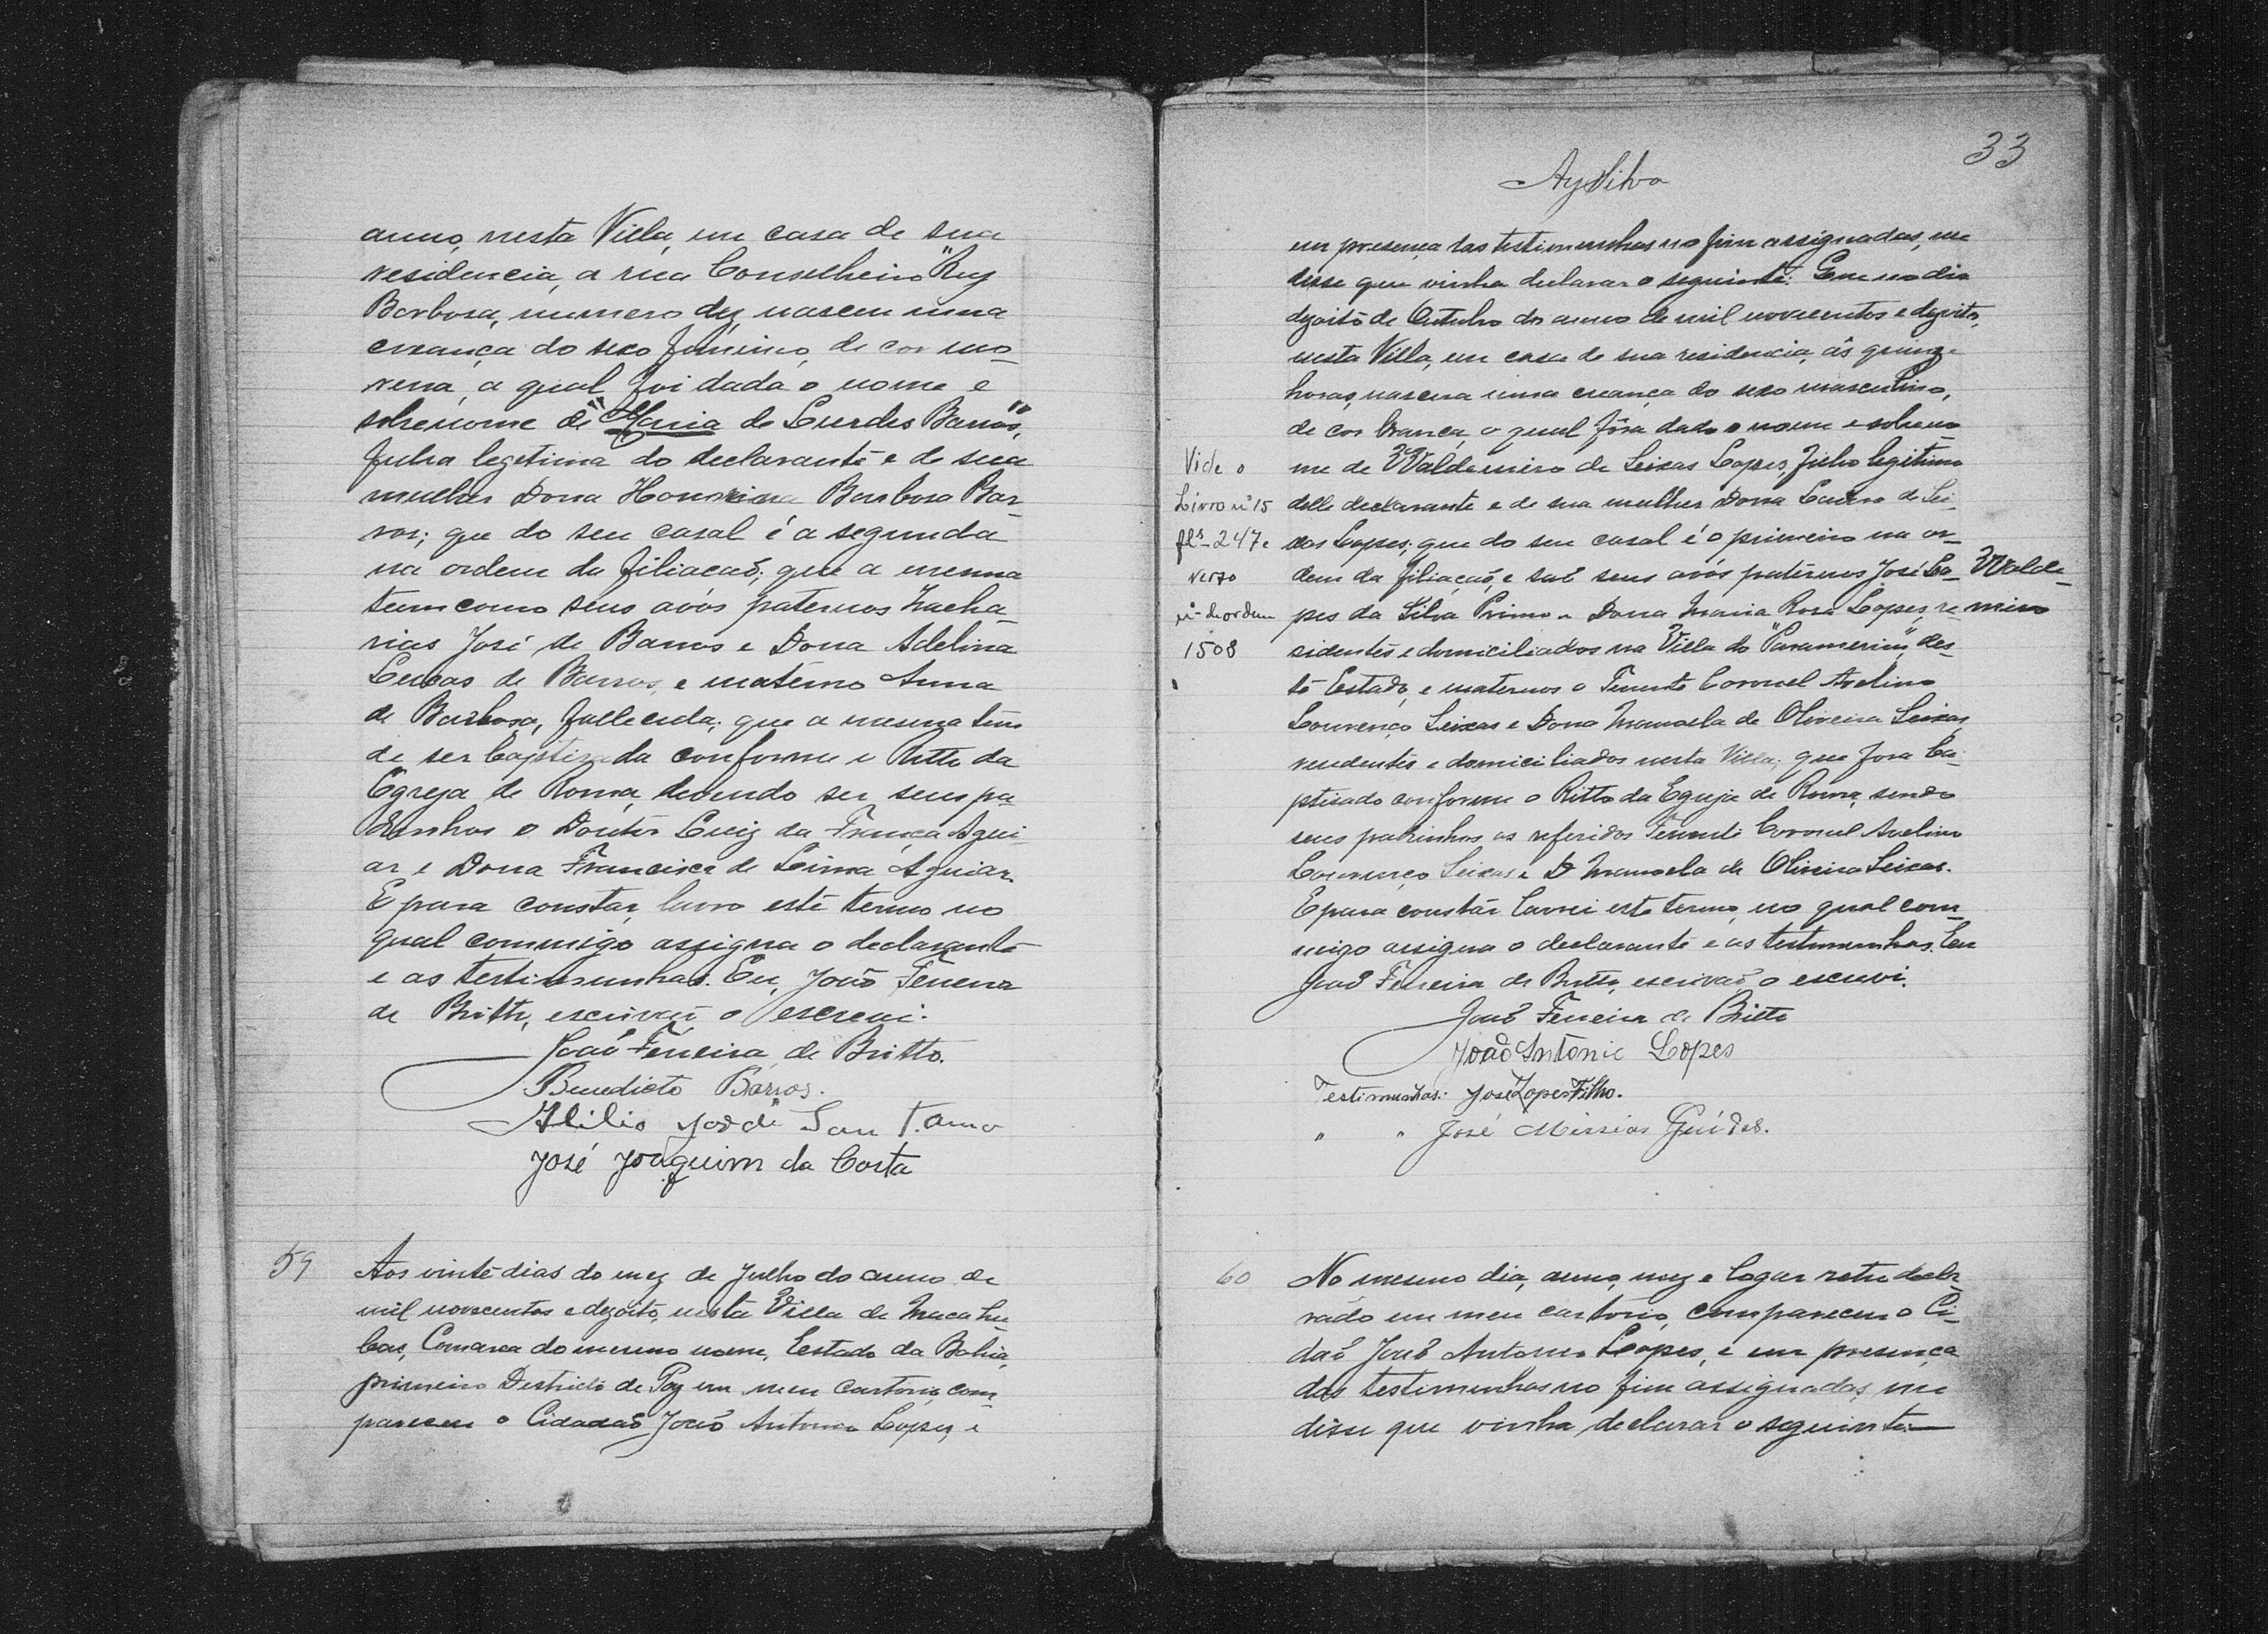 anno, nesta Villa, em casa de sua
residencia, a rua Conselheiro "Ruy
Barbosa, numero dez, nasceu uma
creança do sexo feminino, de cor mo-
rena, a qual foi dada o nome e
sobrenome de "Maria de Lurdes Barros",
filha legitima do declarante e de sua
mulher Dona Barbosa Bar-
ros; que do seu casal é a segunda
na ordem da filiacaõ; que a mesma
tem como seus avós paternos Zacha-
rias José de Barros e Dona Adelina
de Barros, e materno Anna
de Barbosa, fallecida; que a mesma tem
de ser baptizada conforme o Ritto da
Egreja de Roma, devendo ser seus pa-
drinhos o Doutor Luiz da França Agui-
ar e Dona Francisca de Lima Aguiar.
E para constar, lavro este termo no
qual commigo assigna o declarante
e as testimunhas. Eu, João Ferreira
de Britto, escrivaõ o escrevi.
Joaõ Ferreira de Britto.
Benedicto Barros.
José Joaquim da Costa
59 Aos vinte dias do mez de Julho do anno de
mil novecentos e dezoito, nesta Villa de Macahu-
bas, Comarca do mesmo nome, Estado da Bahia,
primeiro Destricto de Paz em meu cartorio, com-
pareceu o Cidadaõ Joaõ Antonio Lopes, e
33
AySilva
em presença das testimunhas no fim assignadas, me
disse que vinha declarar o seguinte: Que no dia
dezoito de Outubro do anno de mil novecentos e dezoito,
nesta Villa, em casa de sua residencia, ás quinze
horas, nascera uma creança do sexo masculino,
de cor branca, o qual fôra dado o nome e sobreno-
me de Waldemiro de Seixas Lopes, filho legitimo
delle declarante e de sua mulher Dona de Sei-
xas Lopes; que do seu casal é o primeiro na or-
dem da filiaçaõ, e saõ seus avós paternos José Lo-
pes da Silva Primo e Dona Maria Rosa Lopes, re-
sidentes e domiciliados na Villa do "Paramerim", des-
te Estado, e maternos o Tenente Coronel Avelino
Lourenço Seixas e Dona Manoela de Oliveira Seixas,
residentes e domiciliados nesta Villa; que fora ba-
ptisado conforme o Ritto da Egreja de Roma, sendo
seus padrinhos os referidos Tenente Coronel Avelino
Lourenço Seixas e D. Manoela de Oliveira Seixas.
E para constar lavrei este termo, no qual com-
migo assigna o declarante e as testimunhas. Eu
Joaõ Ferreira de Britto, escrivaõ o escrevi.
Joaõ Ferreira de Britto
João Antonio Lopes
Testimunhas: José Lopes Filho.
" " José Missias Guídes.
Vide o
Livro nº 15
fls - 247 e
verso
nº de ordem
1508
Walde-
miro
60 No mesmo dia, anno, mez e logar retro decla-
rado em meu cartorio, compareceu o Ci-
daõ Joaõ Antonio Lopes, e em presença
das testimunhas no fim assignadas, me
disse que vinha declarar o seguinte:—